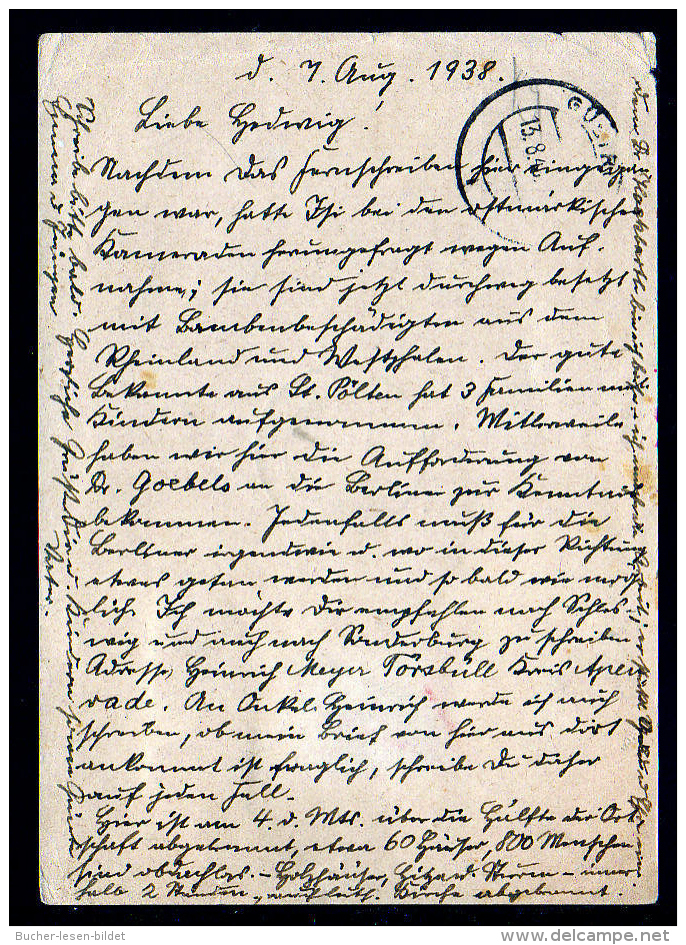 d. 7. Aug. 1938.
Liebe Hedwig!
Nachdem das Fernschreiben hier eingegan
gen war, hatte Isi bei den ostmärkischen
Kameraden herumgefragt wegen Auf-
nahme; sie sind jetzt durchweg besetzt
mit Bombenbeschädigten aus dem
Rheinland und Westphalen. Der gute
Bekannte aus St. Pölten hat 3 Familien mit
Kindern aufgenommen. Mittlerweile
haben wir hier die Aufforderung von
Dr. Goebels an die Berliner zur Kenntnis
bekommen. Jedenfalls muß für die
Berliner irgendwie u. wo in dieser Richtung
etwas getan werden und so bald wie mög
lich. Ich möchte Dir empfehlen nach Schles
wig und auch nach Sonderburg zu schreiben
Adresse Heinrich Meyer Törsbüll Kreis Apen
rade. An Onkel Heinrich werde ich auch
schreiben, ob mein Brief von hier aus dort
ankommt ist fraglich, schreibe Du daher
auf jeden Fall.
Hier ist am 4. d. Mts. über die Hälfte der Ort
schaft abgebrannt, etwa 60 Häuser, 800 Menschen
sind obdachlos. - Holzhäuser, Hitze u. Sturm - inner
halb 2 Stunden, auch luth. Kirche abgebrannt.
Schreibe bitte bald. Herzliche Grüße Dir u. Kindern
Vater.
13.8.4
Bucher-lesen-bildet
delcampe.net